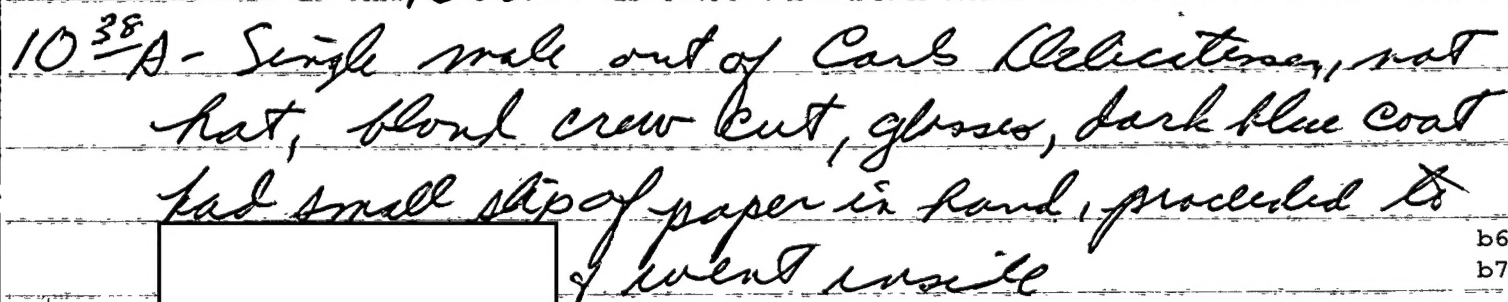 10 38 A - Single male out of Carls Delicatessen, not
hat, blond crew cut, glasses, dark blue coat
had small slip of paper in hand, proceeded to
& went inside
b6
b7